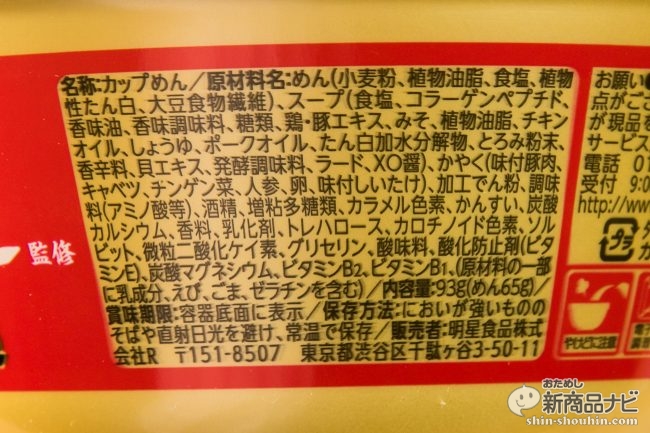 名称:カップめん/原材料名:めん(小麦粉、植物油脂、食塩、植物
性たん白、大豆食物繊維)、スープ(食塩、コラーゲンペプチド、
香味油、香味調味料、糖類、鶏・豚エキス、みそ、植物油脂、チキン
オイル、しょうゆ、ポークオイル、たん白加水分解物、とろみ粉末、
香辛料、貝エキス、発酵調味料、ラード、XO醤)、かやく(味付豚肉、
キャベツ、チンゲン菜、人参、卵、味付しいたけ)、加工でん粉、調味
料(アミノ酸等)、酒精、増粘多糖類、カラメル色素、かんすい、炭酸
カルシウム、香料、乳化剤、トレハロース、カロチノイド色素、ソル
ビット、微粒二酸化ケイ素、グリセリン、酸味料、酸化防止剤(ビタ
ミンE)、炭酸マグネシウム、ビタミンB2、ビタミンB1、(原材料の一部
に乳成分、えび、ごま、ゼラチンを含む)/内容量:93g(めん65g)/
賞味期限:容器底面に表示/保存方法:においが強いものの
そばや直射日光を避け、常温で保存/販売者:明星食品株式
会社R 〒151-8507 東京都渋谷区千駄ヶ谷3-50-11
監修
お願い
点がござ
が現品を
サービス
電話 01
受付 9:0
http://www
プラ
やけどに注意
おためし
新商品ナビ
shin-shouhin.com